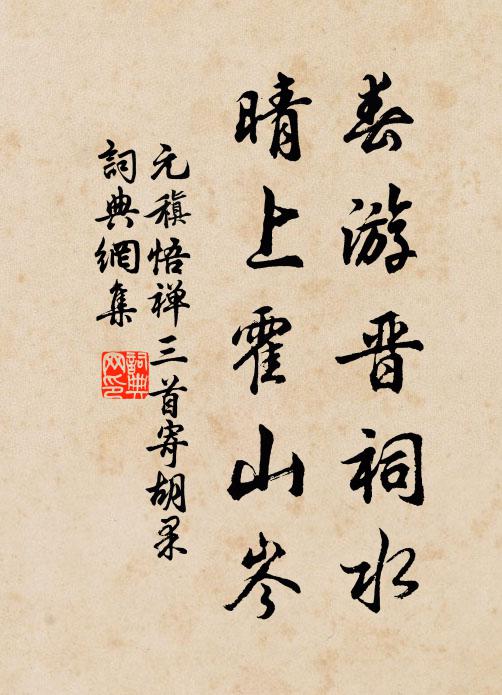 春游晋祠水
晴上霍山岑
元稹悟禅三首寄胡果
詞典網集
詞典网印